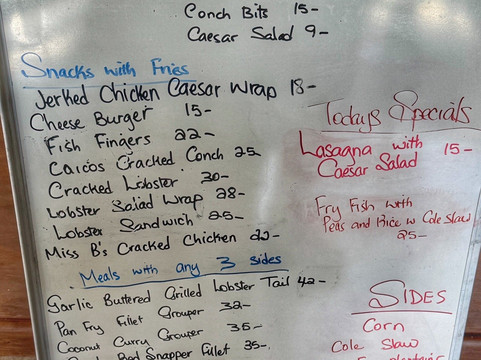 Conch Bits 15-
Caesar Salad 9-
Snacks with Fries
Jerked Chicken Caesar Wrap 18-
Cheese Burger 15-
Fish Fingers 22-
Caicos Cracked Conch 25-
Cracked Lobster 30-
Lobster Salad Wrap 28-
Lobster Sandwich 25-
Miss B's Cracked Chicken 20-
Meals with any 3 sides
Garlic Buttered Grilled Lobster Tail 42-
Pan Fry Fillet Grouper 32-
Coconut Curry Grouper 35-
Red Snapper Fillet 35-
Todays Specials
Lasagna with 15-
Caesar Salad
Fry Fish with
Peas and Rice w Cole Slaw
25-
SIDES
Corn
Cole Slaw